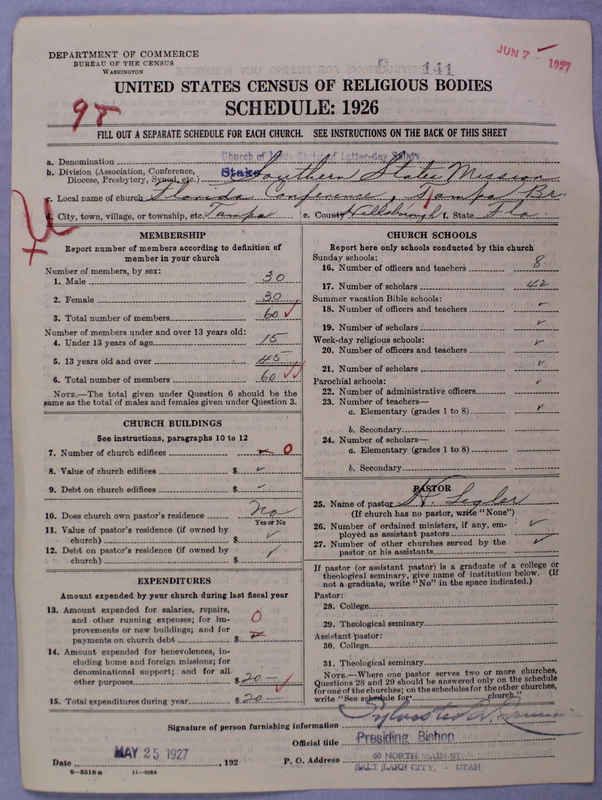 DEPARTMENT OF COMMERCE
BUREAU OF THE CENSUS
WASHINGTON
141
JUN 7 - 1927
UNITED STATES CENSUS OF RELIGIOUS BODIES
SCHEDULE: 1926
98
FILL OUT A SEPARATE SCHEDULE FOR EACH CHURCH. SEE INSTRUCTIONS ON THE BACK OF THIS SHEET
a. Denomination Church of Jesus Christ of Latter-day Saints
b. Division (Association, Conference, Diocese, Presbytery, Synod, etc.) Stake Southern States Mission
c. Local name of church Florida Conference, Tampa Br.
d. City, town, village, or township, etc. Tampa e. County Hillsborough f. State Fla
MEMBERSHIP
Report number of members according to definition of
member in your church
Number of members, by sex:
1. Male 30
2. Female 30
3. Total number of members 60
Number of members under and over 13 years old:
4. Under 13 years of age 15
5. 13 years old and over 45
6. Total number of members 60
NOTE.—The total given under Question 6 should be
same as the total of males and females given under Question 3.
CHURCH BUILDINGS
See instructions, paragraphs 10 to 12
7. Number of church edifices 0
8. Value of church edifices $
9. Debt on church edifices $
10. Does church own pastor's residence No
Yes or No
11. Value of pastor's residence (if owned by
church) $
12. Debt on pastor's residence (if owned by
church) $
EXPENDITURES
Amount expended by your church during last fiscal year
13. Amount expended for salaries, repairs,
and other running expenses; for im-
provements or new buildings; and for
payments on church debt $ 0
14. Amount expended for benevolences, in-
cluding home and foreign missions; for
denominational support; and for all
other purposes $ 20 —
15. Total expenditures during year $ 20 —
CHURCH SCHOOLS
Report here only schools conducted by this church
Sunday schools:
16. Number of officers and teachers 8
17. Number of scholars 42
Summer vacation Bible schools:
18. Number of officers and teachers
19. Number of scholars
Week-day religious schools:
20. Number of officers and teachers
21. Number of scholars
Parochial schools:
22. Number of administrative officers
23. Number of teachers—
a. Elementary (grades 1 to 8)
b. Secondary
24. Number of scholars—
a. Elementary (grades 1 to 8)
b. Secondary
PASTOR
25. Name of pastor H. Legler
(If church has no pastor, write "None")
26. Number of ordained ministers, if any, em-
ployed as assistant pastors
27. Number of other churches served by the
pastor or his assistants
If pastor (or assistant pastor) is a graduate of a college or
theological seminary, give name of institution below. (If
not a graduate, write "No" in the space indicated.)
Pastor:
28. College
29. Theological seminary
Assistant pastor:
30. College
31. Theological seminary
NOTE.—Where one pastor serves two or more churches,
Questions 28 and 29 should be answered only on the schedule
for one of the churches; on the schedules for the other churches,
write "See schedule for church."
Signature of person furnishing information Sylvester Q. Cannon
Official title Presiding Bishop
Date MAY 25 1927, 192 P. O. Address 40 NORTH MAIN ST
SALT LAKE CITY, - UTAH
8—5518 a 11—9064